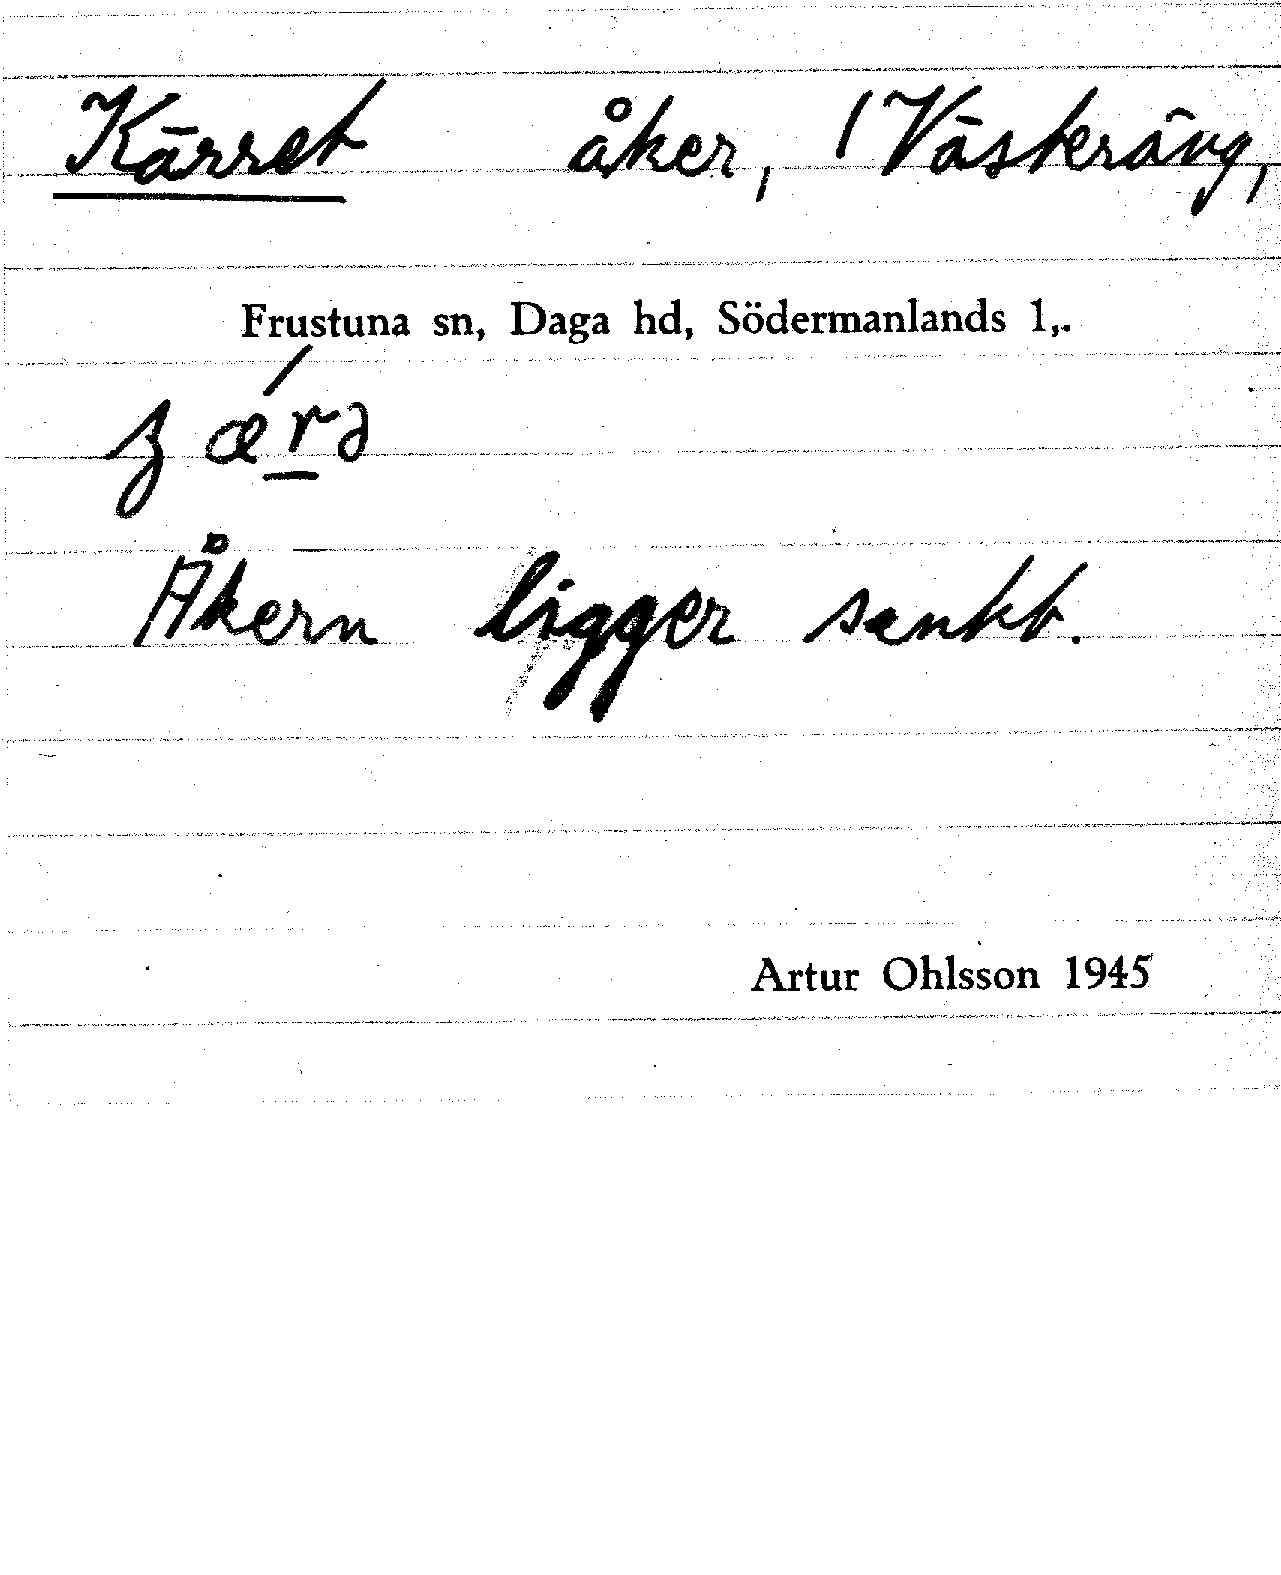 Kärret åker, 1 Västeräng,
Frustuna sn, Daga hd, Södermanlands l,.
Åkern ligger sankt.
Artur Ohlsson 1945